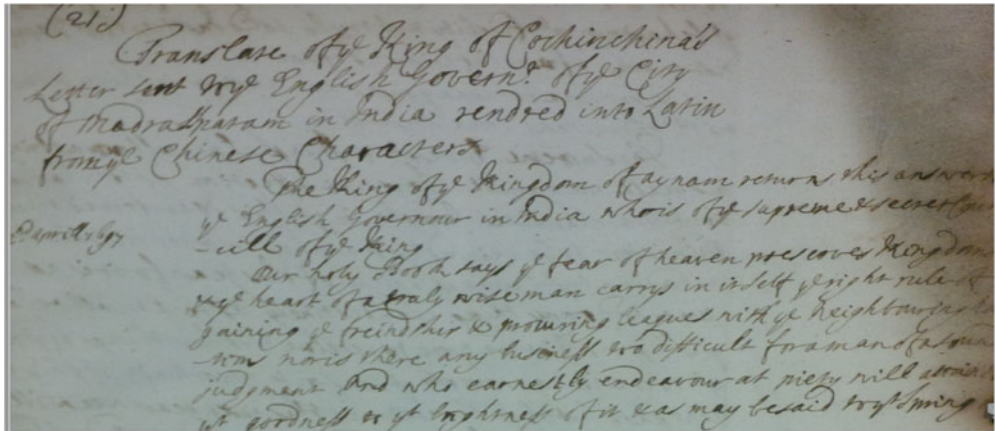 (21)
Translate of ye King of Cochinchina's
Letter sent to ye English Govern.r of ye City
of Madraspatam in India rendred into Latin
from ye Chinese Characters
The King of ye Kingdom of aynam returns this answer
ye English Governour in India who is of ye supreme & secret
-cill of ye King
Aprill 1697
Our holy Book says ye fear of heaven preserves Kingdom
& ye heart of a truly wise man carrys in it self ye right rule of
gaining ye freindship & procuring leagues with ye neighbouring
nor is there any business too difficult for a man of a sound
judgment And who earnestly endeavour at piety will attain
yt goodness & yt brightness of it & as may be said